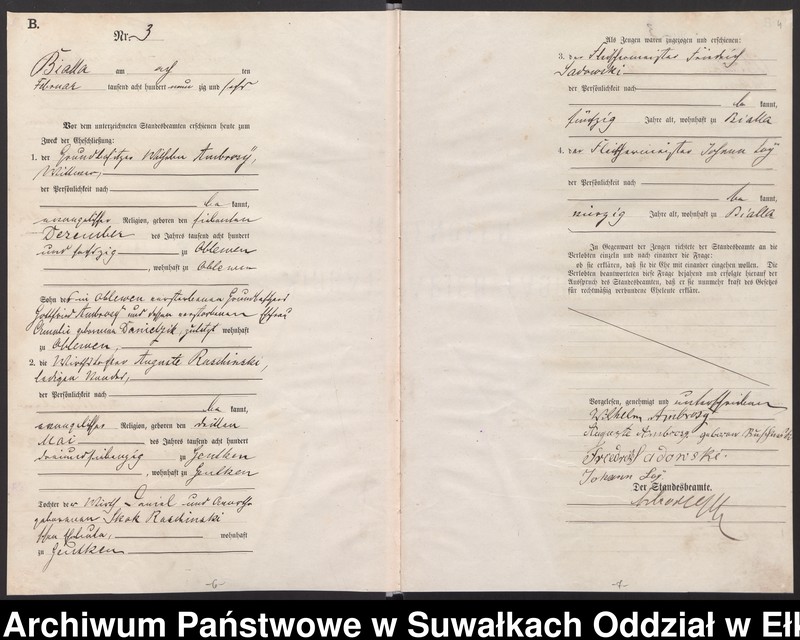 B.
Nr. 3
Bialla am acht ten
Februar tausend acht hundert neun zig und sechs
Vor dem unterzeichneten Standesbeamten erschienen heute zum
Zweck der Eheschließung:
1. der Grundbesitzer Wilhelm Ambrosy,
Wittwer,
der Persönlichkeit nach
be kannt,
evangelischer Religion, geboren den siebenten
Dezember des Jahres tausend acht hundert
und sechszig zu Oblewen
, wohnhaft zu Oblewen
Sohn des in Oblewen verstorbenen Grundbesitzers
Gottfried Ambrosy und dessen verstorbenen Ehefrau
Amalie geborenen Danielzik, zuletzt wohnhaft
zu Oblewen,
2. die Wirthstochter Auguste Raschinski,
ledigen Standes,
der Persönlichkeit nach
be kannt,
evangelischer Religion, geboren den dritten
Mai des Jahres tausend acht hundert
dreiundsiebenzig zu Gentken
, wohnhaft zu Gentken
Tochter der Wirth Daniel und
geborenen Skok Raschinski
Eheleute, wohnhaft
zu Gentken
-6-
4
Als Zeugen waren zugezogen und erschienen:
3. der Fleischermeister Friedrich
Sadowski
der Persönlichkeit nach
be kannt,
fünfzig Jahre alt, wohnhaft zu Bialla
4. der Fleischermeister Johann Loy
der Persönlichkeit nach
be kannt,
vierzig Jahre alt, wohnhaft zu Bialla
In Gegenwart der Zeugen richtete der Standesbeamte an die
Verlobten einzeln und nach einander die Frage:
ob sie erklären, daß sie die Ehe mit einander eingehen wollen. Die
Verlobten beantworteten diese Frage bejahend und erfolgte hierauf der
Ausspruch des Standesbeamten, daß er sie nunmehr kraft des Gesetzes
für rechtmäßig verbundene Eheleute erkläre.
Vorgelesen, genehmigt und unterschrieben
Wilhelm Ambrosy
Auguste Ambrosy geboren
Friedrich Sadowski.
Johann Loy
Der Standesbeamte.
-7-
Archiwum Państwowe w Suwałkach Oddział w Eł